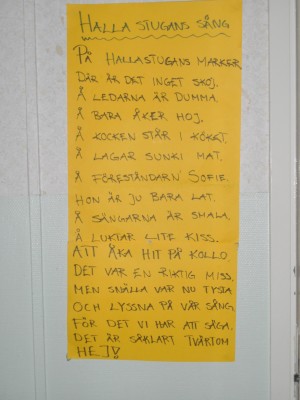 HALLA STUGANS SÅNG
PÅ HALLASTUGANS MARKER
DÄR ÄR DET INGET SKOJ.
Å LEDARNA ÄR DUMMA.
Å BARA ÅKER HOJ.
Å KOCKEN STÅR I KÖKET.
Å LAGAR SUNKI MAT.
Å FÖRESTÅNDARN SOFIE.
HON ÄR JU BARA LAT.
Å SÄNGARNA ÄR SMALA.
Å LUKTAR LITE KISS.
ATT ÅKA HIT PÅ KOLLO.
DET VAR EN RIKTIG MISS.
MEN SNÄLLA VAR NU TYSTA
OCH LYSSNA PÅ VÅR SÅNG
FÖR DET VI HAR ATT SÄGA.
DET ÄR SÅKLART TVÄRTOM
HEJ!